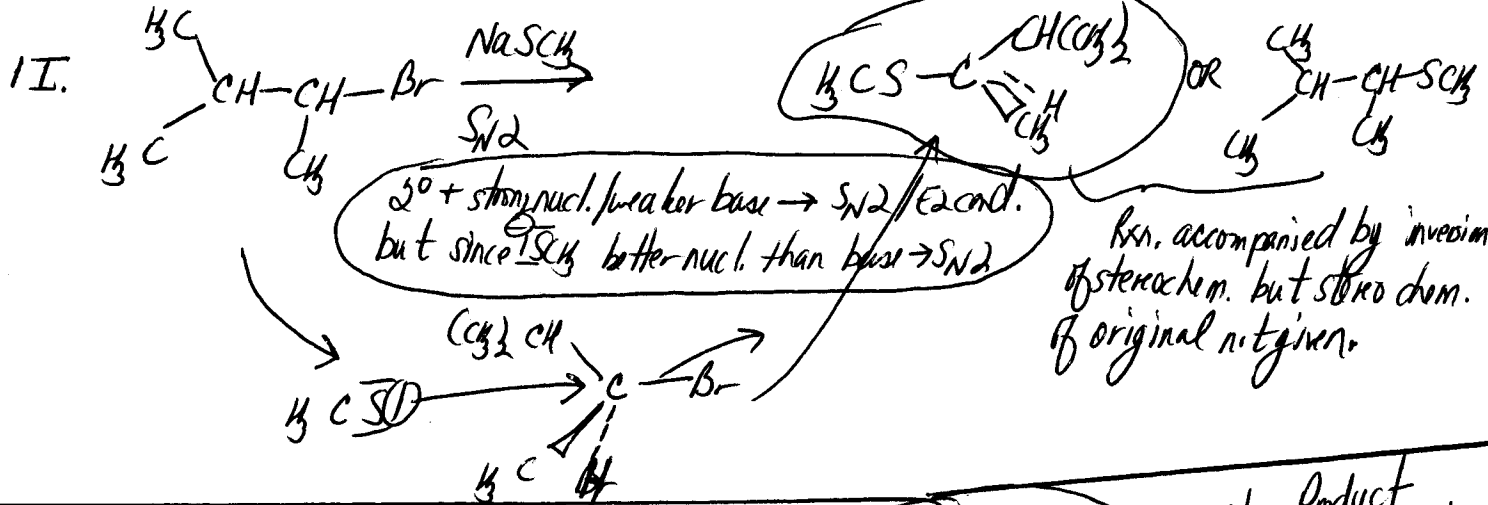 1I.
H₃C
CH—CH—Br
H₃C
CH₃
NaSCH₃
SN2
CH(CH₃)₂
H₃CS—C
H
CH₃
OR
CH₃
CH—CH—SCH₃
CH₃
CH₃
2° + strong nucl./weaker base → SN2/E2 cond.
but since ⊖SCH₃ better nucl. than base → SN2
Rxn. accompanied by inversion
of stereochem. but stereochem.
of original not given.
(CH₃)₂CH
H₃CS⊖
C—Br
H₃C
H
Product